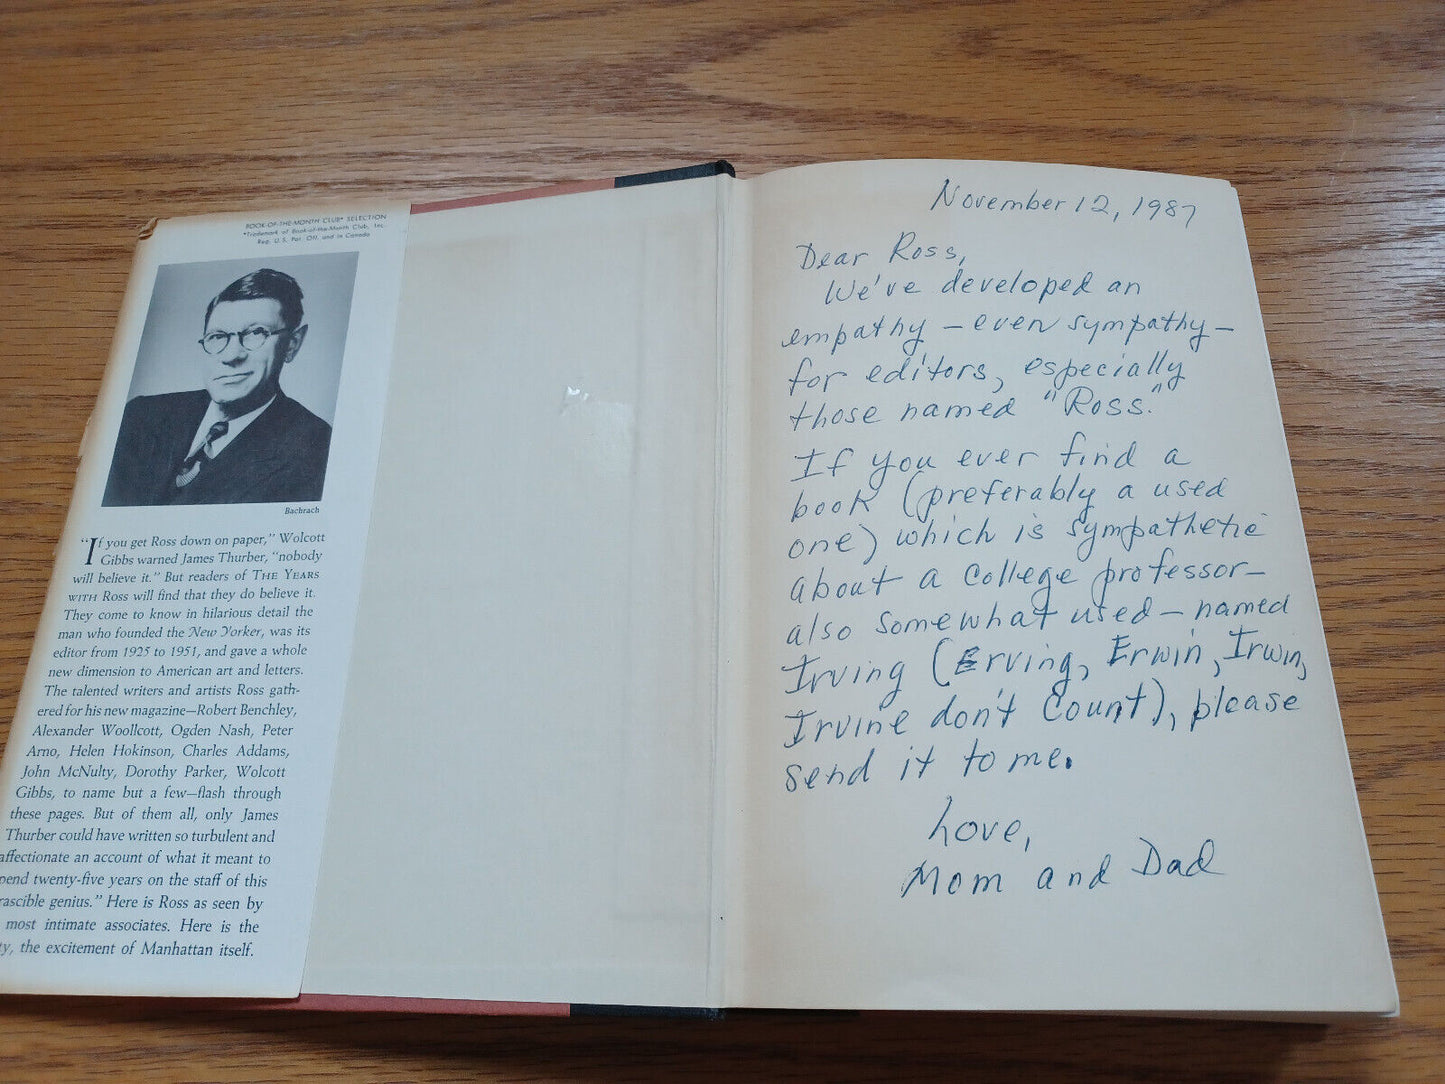 BOOK-OF-THE-MONTH CLUB* SELECTION
*Trademark of Book-of-the-Month Club, Inc.
Reg. U.S. Pat. Off. and in Canada
Bachrach
"If you get Ross down on paper," Wolcott
Gibbs warned James Thurber, "nobody
will believe it." But readers of THE YEARS
WITH ROSS will find that they do believe it.
They come to know in hilarious detail the
man who founded the New Yorker, was its
editor from 1925 to 1951, and gave a whole
new dimension to American art and letters.
The talented writers and artists Ross gath-
ered for his new magazine—Robert Benchley,
Alexander Woollcott, Ogden Nash, Peter
Arno, Helen Hokinson, Charles Addams,
John McNulty, Dorothy Parker, Wolcott
Gibbs, to name but a few—flash through
these pages. But of them all, only James
Thurber could have written so turbulent and
affectionate an account of what it meant to
pend twenty-five years on the staff of this
rascible genius." Here is Ross as seen by
most intimate associates. Here is the
ty, the excitement of Manhattan itself.
November 12, 1987
Dear Ross,
We've developed an
empathy — even sympathy —
for editors, especially
those named "Ross."
If you ever find a
book (preferably a used
one) which is sympathetic
about a college professor—
also somewhat used — named
Irving (Erving, Erwin, Irwin,
Irvine don't count), please
send it to me.
Love,
Mom and Dad